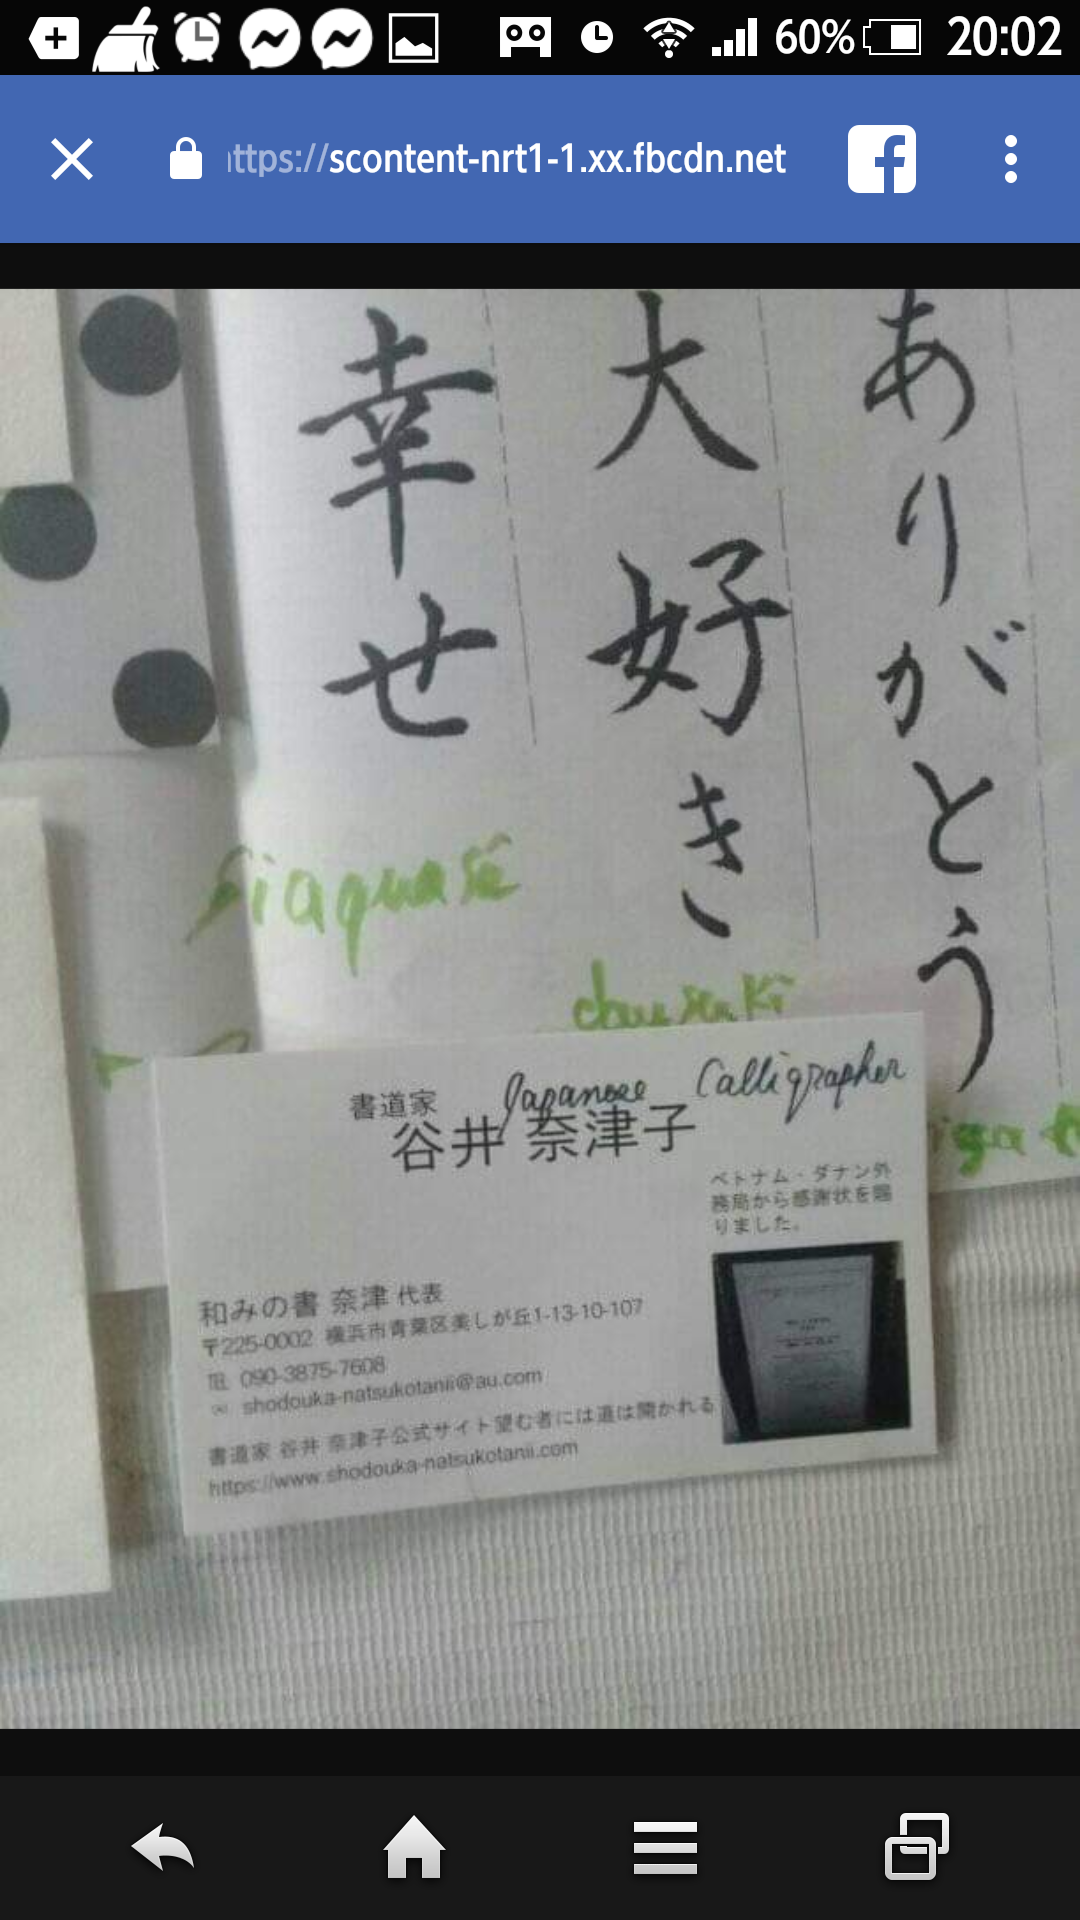 60% 20:02
ttps://scontent-nrt1-1.xx.fbcdn.net
ありがとう
大好き
幸せ
書道家
Japanese Calligrapher
谷井 奈津子
ベトナム・ダナン外
務局から感謝状を賜
りました。
和みの書 奈津 代表
〒225-0002 横浜市青葉区美しが丘1-13-10-107
TEL 090-3875-7608
✉ shodouka-natsukotanii@au.com
書道家 谷井 奈津子公式サイト望む者には道は開かれる
https://www.shodouka-natsukotanii.com